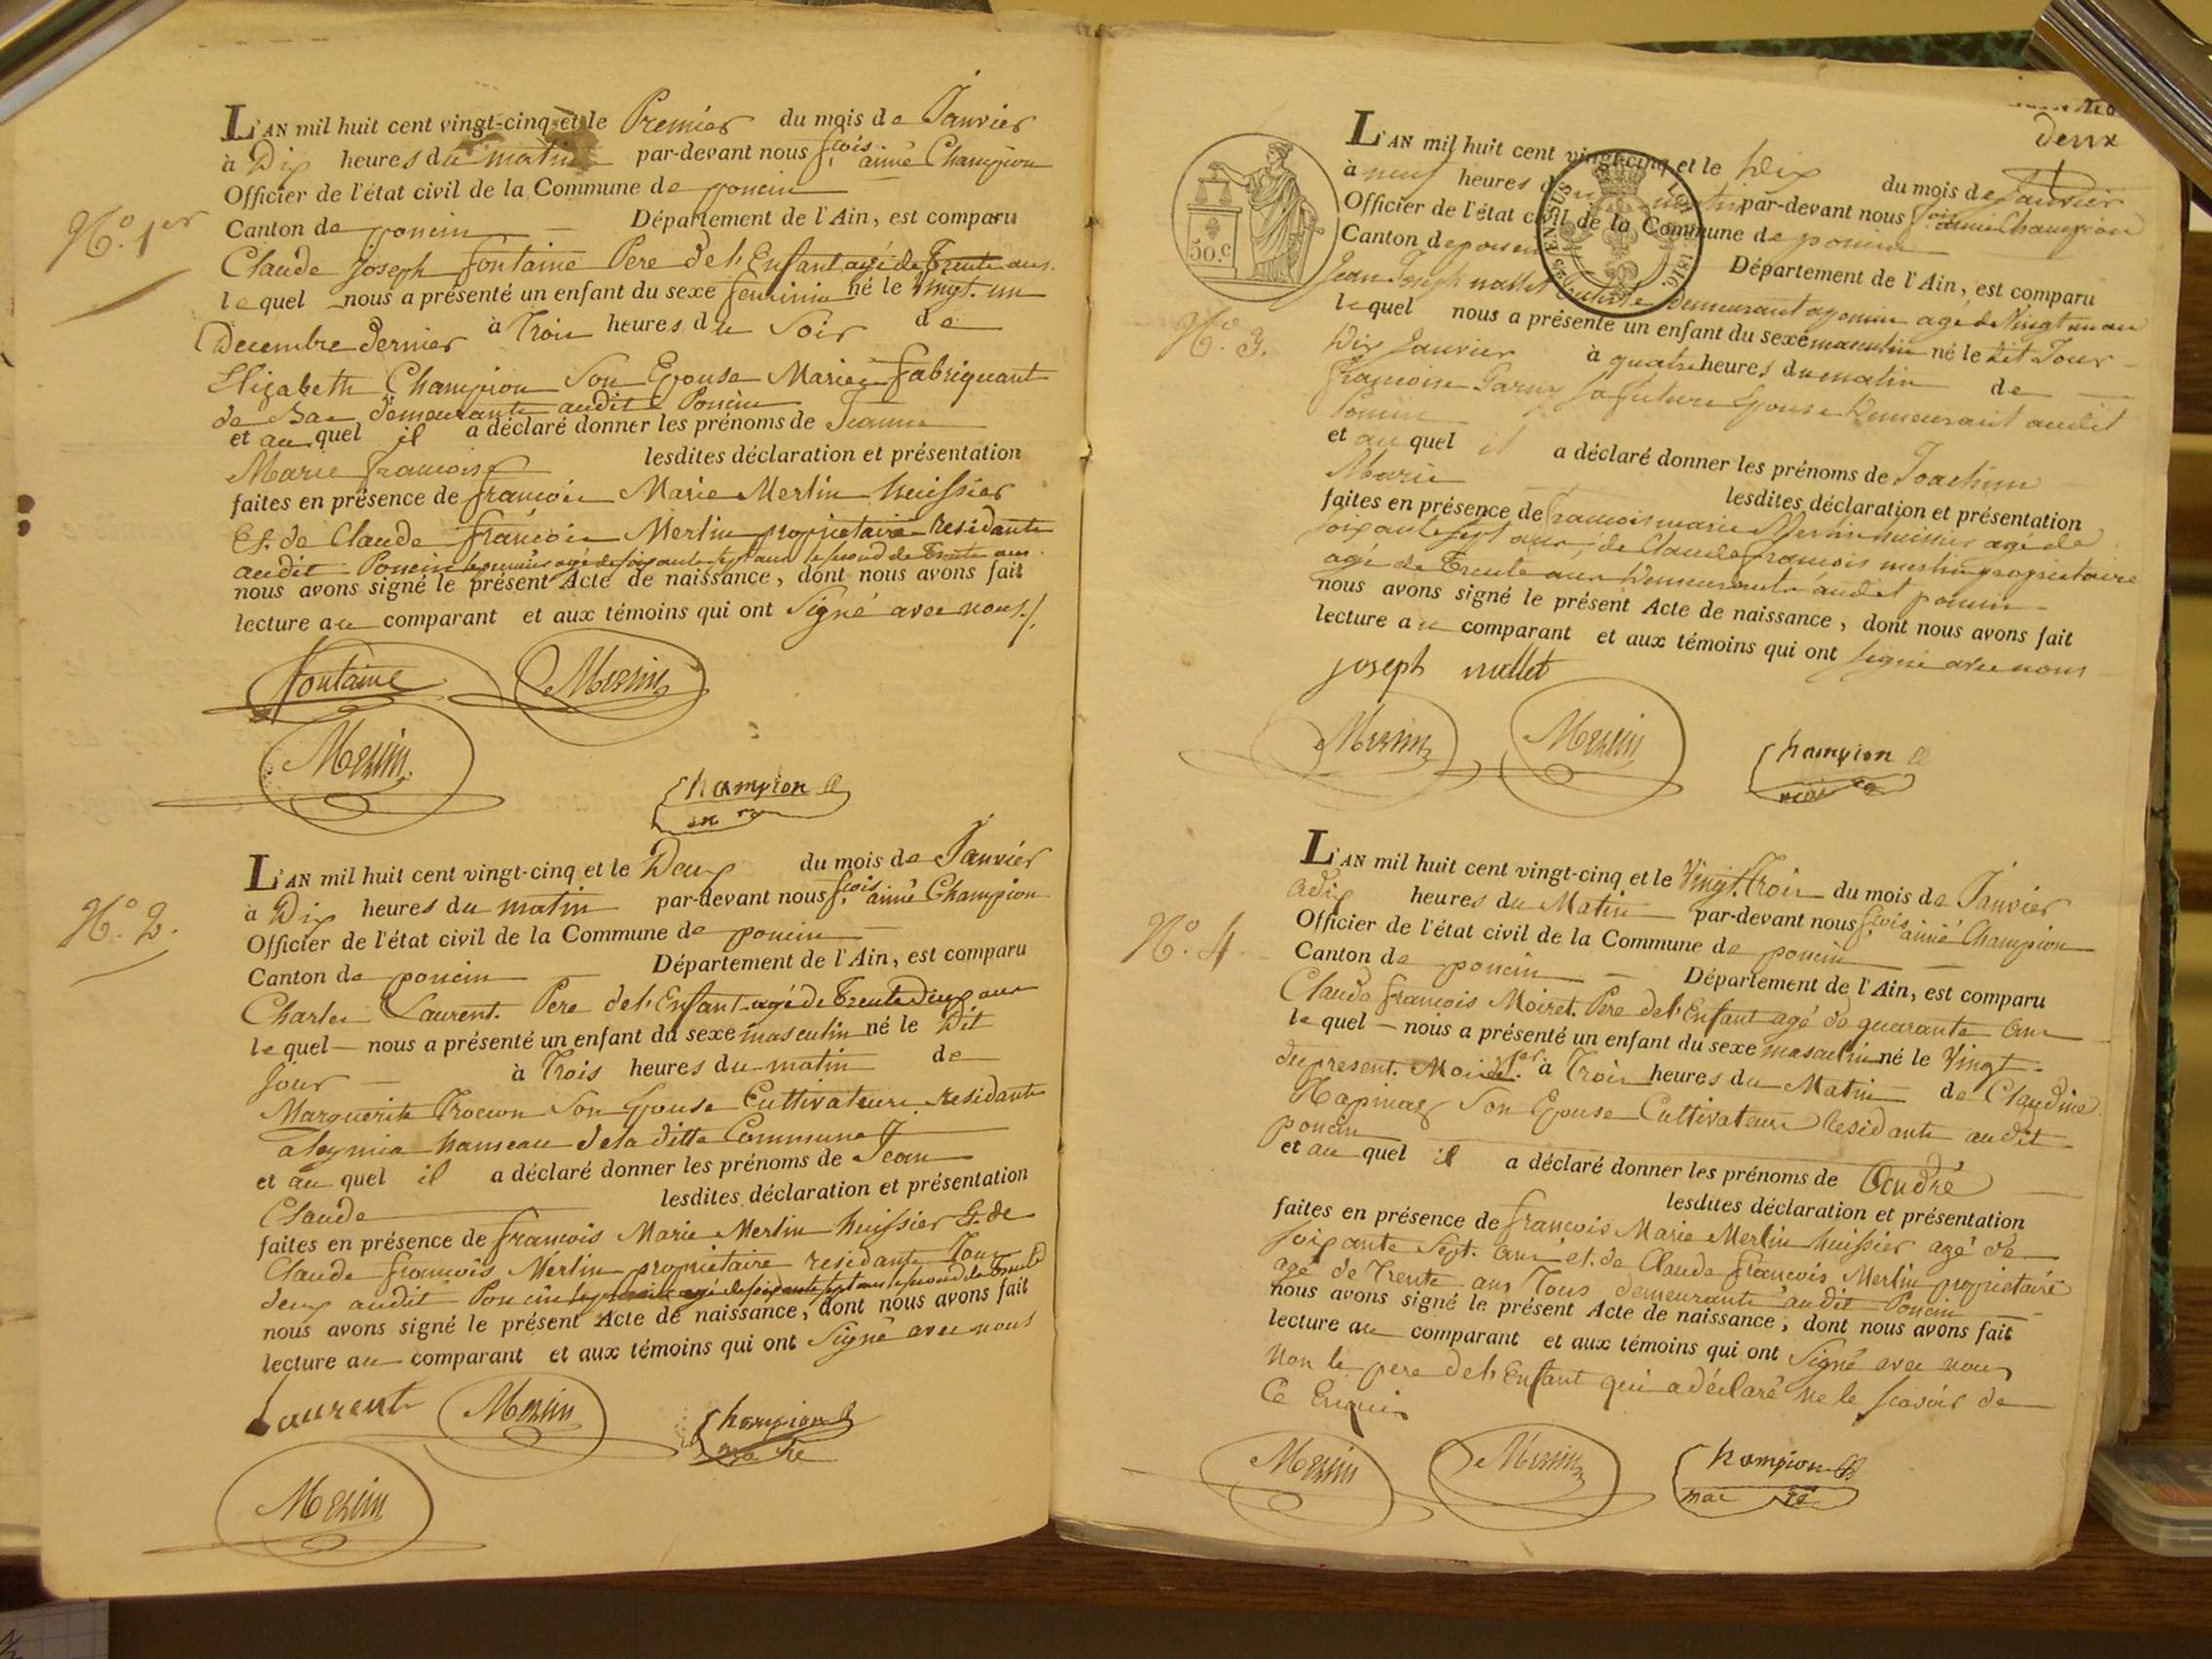 L'AN mil huit cent vingt-cinq et le Premier du mois de Janvier
à Dix heures du matin par-devant nous fcois. aimé Champion
Officier de l'état civil de la Commune de poncin
Canton de poncin Département de l'Ain, est comparu
N.o 1er
Claude joseph fontaine Pere de l'Enfant agé de Trente ans.
lequel nous a présenté un enfant du sexe feminin né le Vingt. un
Decembre dernier à Trois heures du Soir de
Elizabeth Champion Son Epouse Mariee fabriquant
de Bas demeurants audit Poncin
et au quel il a déclaré donner les prénoms de Jeanne
Marie francoise lesdites déclaration et présentation
faites en présence de francois Marie Merlin huissier
Et. de Claude francois Merlin proprietaire residants
audit Poncin le premier agé de soixante sept ans le second de Trente ans.
nous avons signé le présent Acte de naissance, dont nous avons fait
lecture au comparant et aux témoins qui ont Signé avec nous ./.
fontaine Merlin
Merlin
Champion
L'AN mil huit cent vingt-cinq et le Deux du mois de Janvier
à Dix heures du matin par-devant nous fcois. aimé Champion
N.o 2.
Officier de l'état civil de la Commune de poncin
Canton de poncin Département de l'Ain, est comparu
Charles Laurent. Pere de l'Enfant agé de Trente deux ans
lequel nous a présenté un enfant du sexe masculin né le Dit
jour à Trois heures du matin de
Marguerite Trocon Son Epouse Cultivateurs residants
a leymia hameau de la ditte Commune
et au quel il a déclaré donner les prénoms de Jean
Claude lesdites déclaration et présentation
faites en présence de francois Marie Merlin huissier Et. de
Claude francois Merlin proprietaire residants Tous
deux audit Poncin le premier agé de soixante sept ans le second de Trente
nous avons signé le présent Acte de naissance, dont nous avons fait
lecture au comparant et aux témoins qui ont Signé avec nous
Laurent Merlin Champion
maire
Merlin
deux
L'AN mil huit cent vingt-cinq et le Dix du mois de Janvier
à neuf heures du matin par-devant nous fcois aimé Champion
Officier de l'état civil de la Commune de poncin
Canton de poncin Département de l'Ain, est comparu
50.c
2/5 EN SUS LOI 1816.
Jean Joseph mallet demeurant a poncin agé de Vingt un ans
N.o 3.
lequel nous a présenté un enfant du sexe masculin né le dit Jour
Dix Janvier à quatre heures du matin de
francoise Sa future Epouse Demeurant audit
Poncin
et au quel il a déclaré donner les prénoms de Joachim
Marie lesdites déclaration et présentation
faites en présence de francois marie Merlin huissier agé de
soixante sept ans, de Claude francois merlin proprietaire
agé de Trente ans Demeurants audit poncin
nous avons signé le présent Acte de naissance, dont nous avons fait
lecture au comparant et aux témoins qui ont signé avec nous
joseph mallet
Merlin Merlin Champion
maire
L'AN mil huit cent vingt-cinq et le Vingt. Trois du mois de Janvier
a dix heures du Matin par-devant nous fcois. aimé Champion
N.o 4.
Officier de l'état civil de la Commune de poncin
Canton de poncin Département de l'Ain, est comparu
Claude francois Moiret. Pere de l'Enfant agé de quarante ans
lequel nous a présenté un enfant du sexe masculin né le Vingt
du present. Mois à Trois heures du Matin de Claudine
Rapinas Son Epouse Cultivateurs Residants audit
Poncin
et au quel il a déclaré donner les prénoms de André
lesdites déclaration et présentation
faites en présence de francois Marie Merlin huissier agé de
soixante Sept. ans et. de Claude francois Merlin proprietaire
agé de Trente ans Tous demeurants audit Poncin
nous avons signé le présent Acte de naissance, dont nous avons fait
lecture au comparant et aux témoins qui ont Signé avec nous
Non le pere de l'Enfant qui a déclaré ne le scavoir de
Ce Enquis
Merlin Merlin Champion
maire